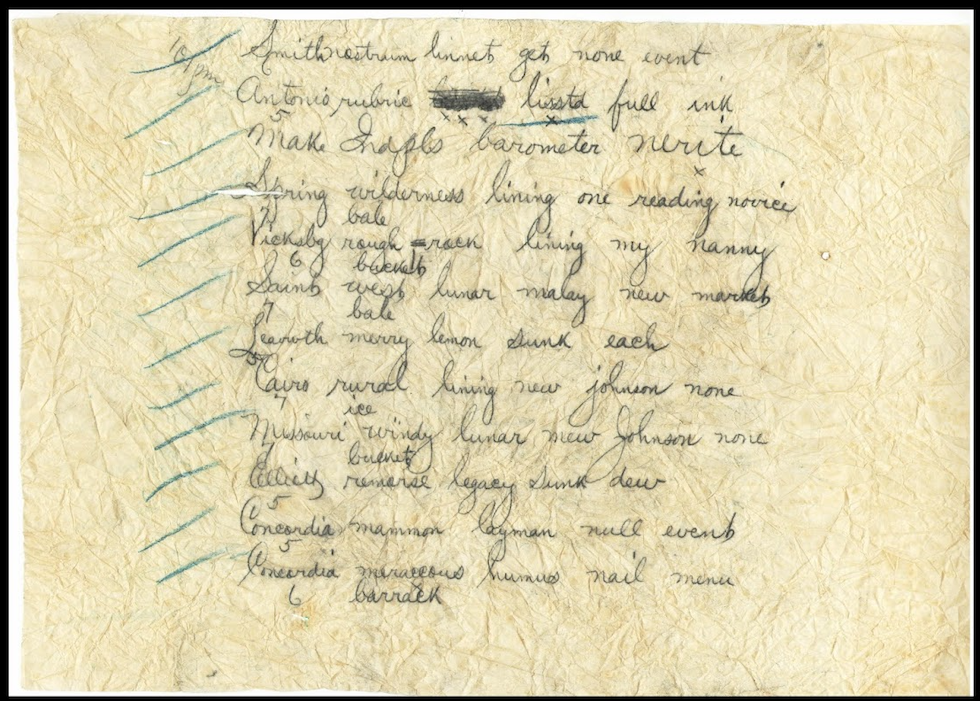 10 pm
Smith nostrum linnet get none event
Antonio rubric lisstd full ink
5 x x x x
Make Indpls barometer nerite
x
Spring wilderness lining one reading novice
7 bale
Vicksbg rough rock lining my nanny
6 bucket
Saint west lunar malay new market
7 bale
Leawth merry lemon sunk each
5
Cairo rural lining new johnson none
7 ice
Missouri windy lunar mew Johnson none
7 bucket
Elliott remorse legacy sunk dew
5
Concordia mammon layman null event
5
Concordia meraceous humus nail menu
6 barrack